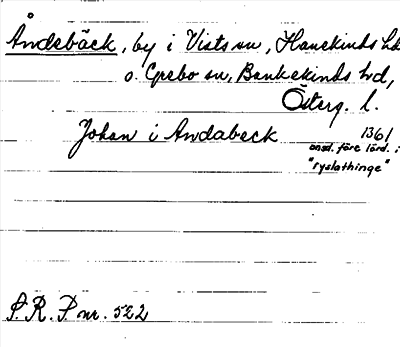 Åndebäck, by i Vists sn, Hanekinds hd
o. Grebo sn, Bankekinds hd,
Österg. l.
Johan i Andabeck 1361
onsd. före lörd. i
"ryslathinge"
S. R. P. nr. 522